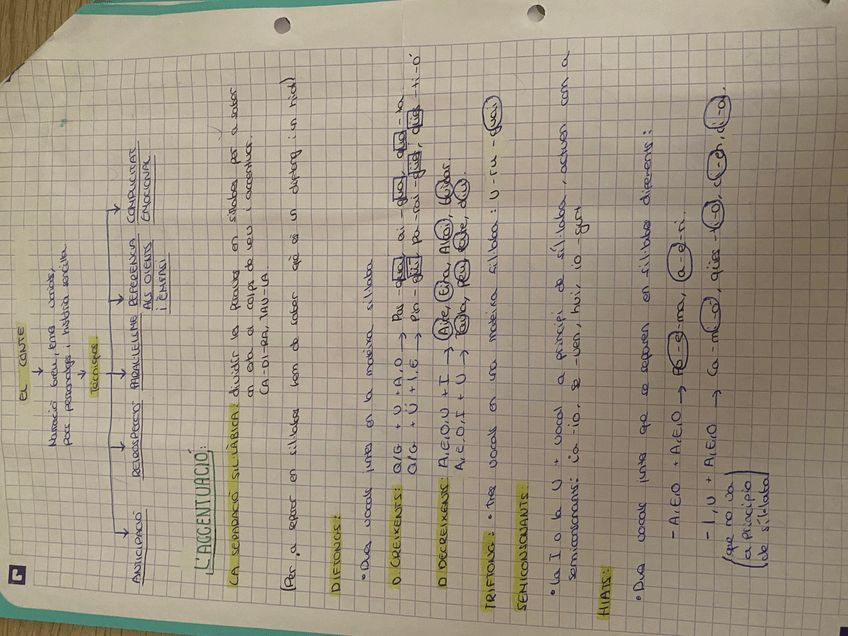 EL CONTE
Narració breu, tema únic,
pocs personatges i història senzilla.
Tècniques
ANTICIPACIÓ
RETROSPECCIÓ
PARAL·LELISME
REFERÈNCIA
ALS OIENTS
I ÈMFASI
COMPLICITAT
EMOCIONAL
L'ACCENTUACIÓ:
LA SEPARACIÓ SIL·LÀBICA: dividir la paraula en síl·labes per a saber
on esta el colp de veu i accentuar.
CA-DI-RA, TAU-LA
(Per a separar en síl·labes hem de saber què és un diftong i un hiat)
DIFTONGS:
• Dues vocals juntes en la mateixa síl·laba
D. CREIXENTS: Q/G + U + A, O → Pas-qual, ai-gua, quo-ta
Q/G + Ü + I, E → Pin-güí, pa-rai-gües, qües-ti-ó
D. DECREIXENTS: A, E, O, U + I → Aire, Eina, Almoi, buidar
A, E, O, I + U → Taula, peu, diu.
TRIFTONG: • Tres vocals en una mateixa síl·laba: U-ru-guai
SEMICONSONANTS:
• la I o la U + vocal a principi de síl·laba, actuen com a
semiconsonants: ia-io, se-uen, hui, io-gurt
HIATS:
• Dues vocals juntes que se separen en síl·labes diferents:
- A, E, O + A, E, O → Po-e-ma, a-e-ri
- I, U + A, E, O → Ca-mi-ó, qües-ti-ó, di-a,
(que no va
a principio
de síl·laba)